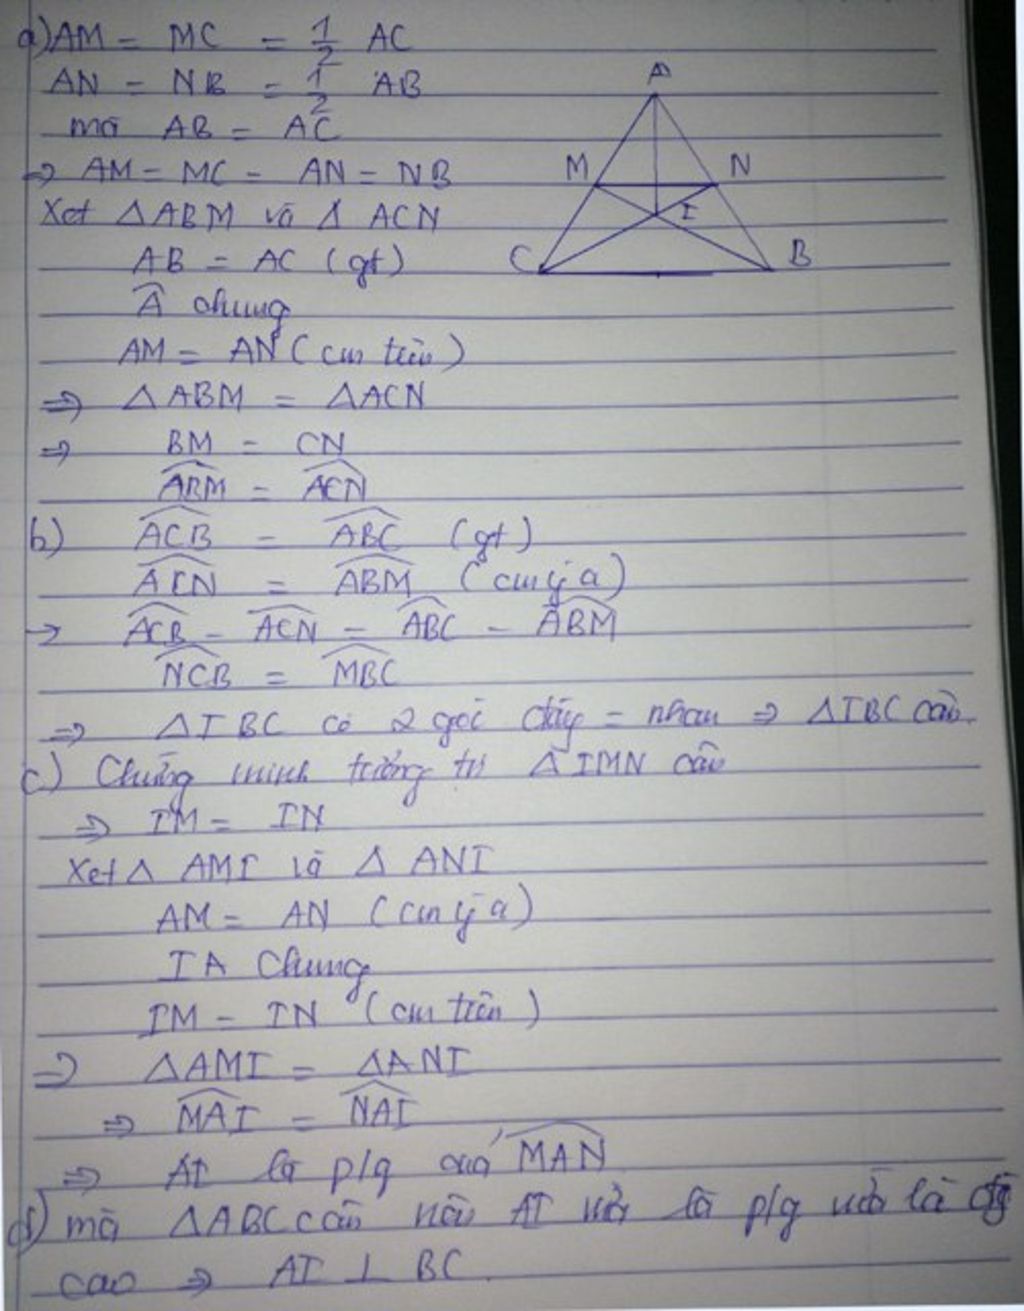 a) AM = MC = 1/2 AC
AN = NB = 1/2 AB
mà AB = AC
⇒ AM = MC = AN = NB
Xét △ABM và △ ACN
AB = AC (gt)
Â chung
AM = AN (cm trên)
⇒ △ABM = △ACN
⇒ BM = CN
ABM = ACN
b) ACB = ABC (gt)
ACN = ABM (cm ý a)
→ ACB - ACN = ABC - ABM
NCB = MBC
⇒ △IBC có 2 góc đáy = nhau ⇒ △IBC cân.
c) Chứng minh tương tự △IMN cân
⇒ IM = IN
Xét △ AMI và △ ANI
AM = AN (cm ý a)
IA Chung
IM = IN (cm trên)
⇒ △AMI = △ANI
⇒ MAI = NAI
⇒ AI là p/g của MAN
d) mà △ABC cân nên AI vừa là p/g vừa là đg
cao ⇒ AI ⊥ BC.
A
M
N
I
C
B